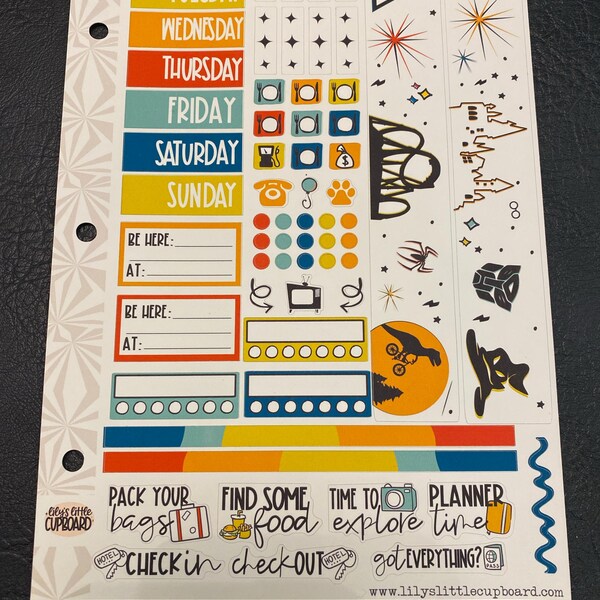 TUESDAY
WEDNESDAY
THURSDAY
FRIDAY
SATURDAY
SUNDAY
BE HERE:
AT:
BE HERE:
AT:
PACK YOUR bags
FIND SOME food
TIME TO explore
PLANNER time
lily's little
CUPBOARD
HOTEL
CHECK in
check OUT
HOTEL
got EVERYTHING?
PASS
www.lilyslittlecupboard.com